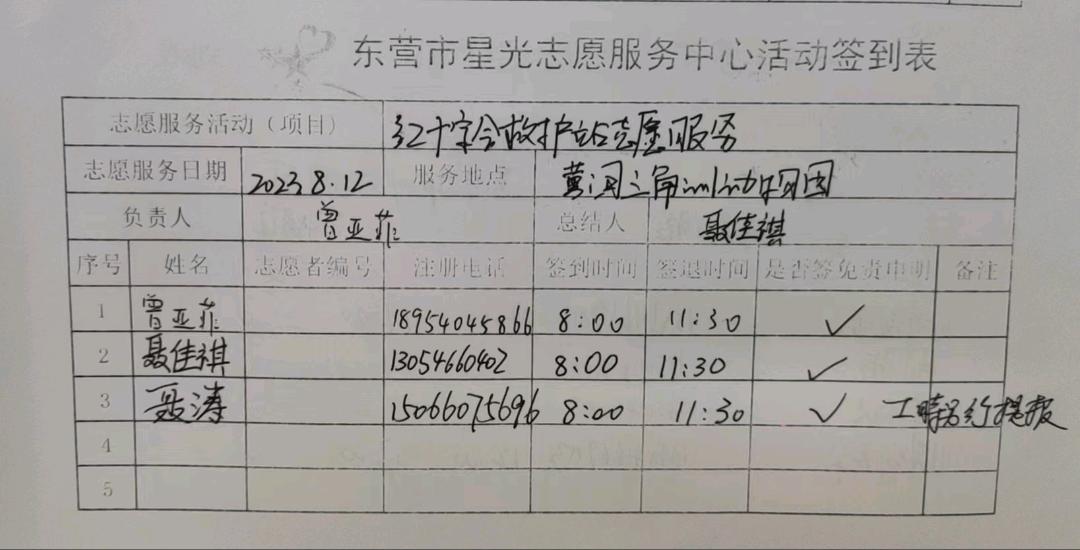 东营市星光志愿服务中心活动签到表
志愿服务活动（项目） 红十字会救护站志愿服务
志愿服务日期 2023 8.12 服务地点 黄河三角洲动物园
负责人 曾亚菲 总结人 聂佳祺
序号 姓名 志愿者编号 注册电话 签到时间 签退时间 是否签免责申明 备注
1 曾亚菲 18954045866 8:00 11:30 ✓
2 聂佳祺 13054660402 8:00 11:30 ✓
3 聂涛 15066075696 8:00 11:30 ✓ 工时另行提报
4
5